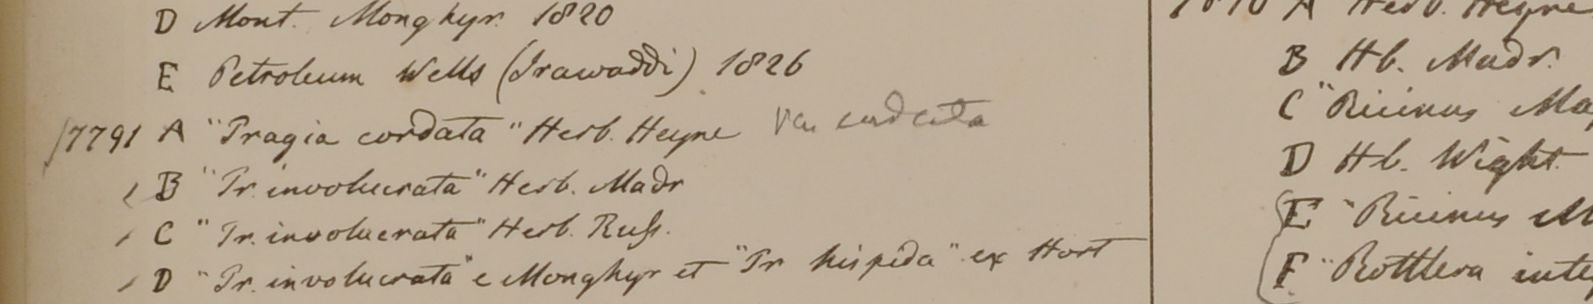 D Mont. Monghyr. 1820
E Petroleum Wells (Irawaddi) 1826
7791 A "Tragia cordata" Herb. Heyne
B "Tr. involucrata" Herb. Madr
C "Tr. involucrata" Herb. Russ.
D "Tr. involucrata" e Monghyr et "Tr hispida" ex Hort
A Herb. Heyne
B Hb. Madr.
C "Ricinus Ma
D Hb. Wight
E "Ricinus M
F "Rottlera inte